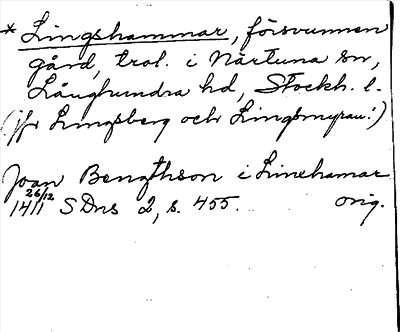 * Lingshammar, försvunnen
gård, trol. i Närtuna sn,
Långhundra hd, Stockh. l.
(jfr Lingsberg och Lingsmyran!)
Joan Bengthson i Linehamar
26/12
1411 SDns 2, s. 455. orig.